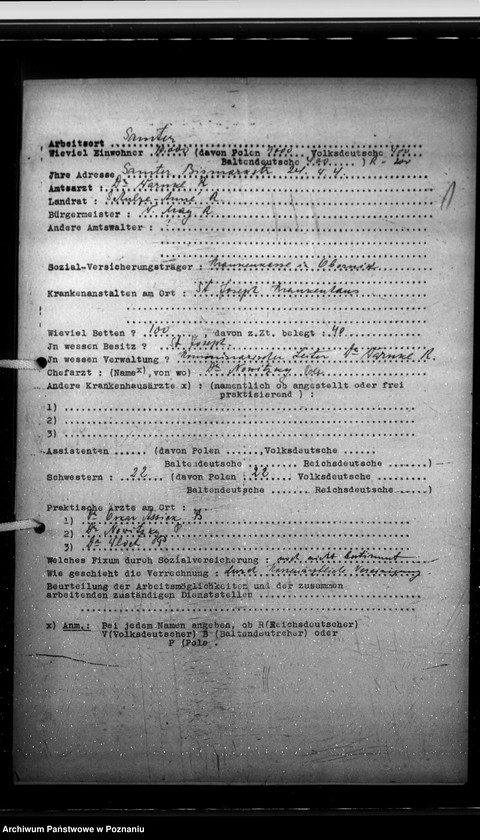 Arbeitsort Samter
Wieviel Einwohner (davon Polen 7000 Volksdeutsche 400
Baltendeutsche ) R - 200
Jhre Adresse Samter Bismarckstr. 24
Amtsarzt : Dr. R
Landrat : R.
Bürgermeister : R
Andere Amtswalter :
Sozial-Versicherungsträger : Krankenkasse in Obornik
Krankenanstalten am Ort : St. Joseph Krankenhaus
Wieviel Betten ? 100 , davon z.Zt. belegt : 40
Jn wessen Besitz ? St. Joseph.
Jn wessen Verwaltung ? Kommissarischer Leiter Dr. R.
Chefarzt : (Name x), von wo) Dr. Nowitzky
Andere Krankenhausärzte x) : (namentlich ob angestellt oder frei
praktisierend ) :
1)
2)
3)
Assistenten (davon Polen , Volksdeutsche
Baltendeutsche Reichsdeutsche )
Schwestern : 22 (davon Polen : 22 Volksdeutsche
Baltendeutsche Reichsdeutsche )
Praktische Ärzte am Ort :
1) Dr. B
2) Dr. Nowitzky P
3) Dr.
Welches Fixum durch Sozialversicherung : noch nicht bestimmt
Wie geschieht die Verrechnung : durch Kassenärztliche Vereinigung
Beurteilung der Arbeitsmöglichkeiten und der zusammen
arbeitenden zuständigen Dienststellen
x) Anm.: Bei jedem Namen angeben, ob R(Reichsdeutscher)
V(Volksdeutscher) B (Baltendeutrcher) oder
P (Pole .
Archiwum Państwowe w Poznaniu